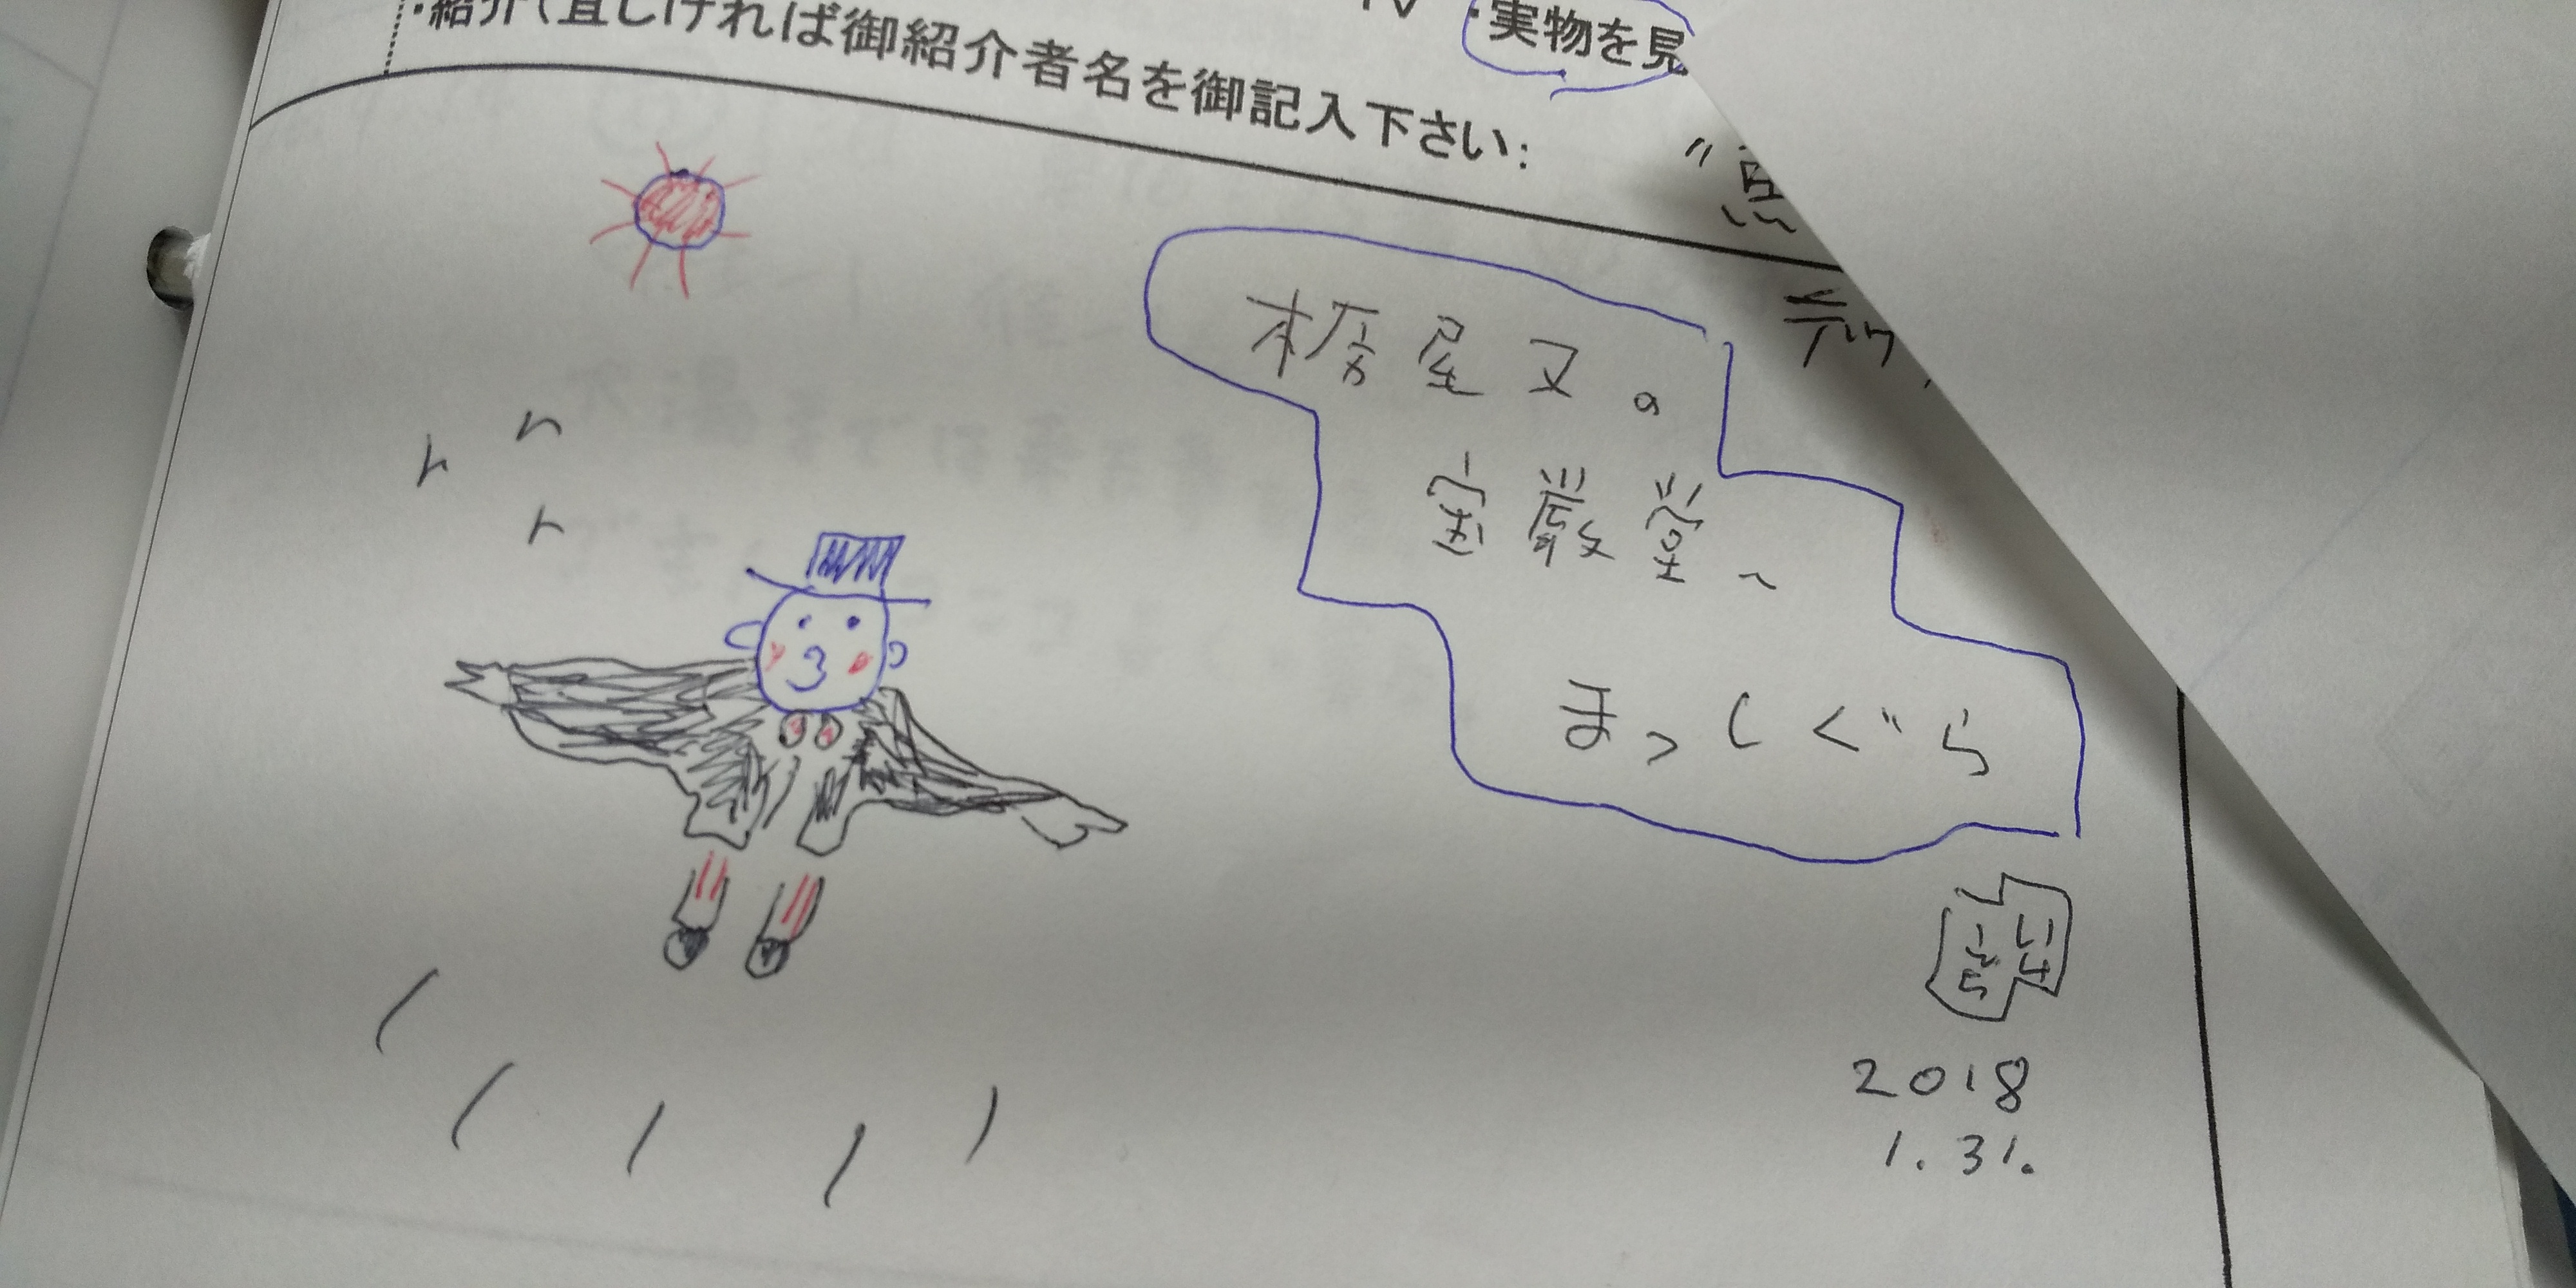 ・紹介(宜しければ御紹介者名を御記入下さい:
・実物を見
屋又の
宝厳堂へ
まっしぐら
2018
1.31.